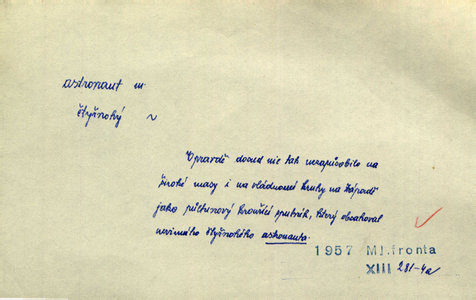 astronaut m.
čtyřnohý ~
Opravdě dosud nic tak nezapůsobilo na
široké masy i na vládnoucí kruhy na Západě
jako půltunový kroužící sputnik, který obsahoval
nevinného čtyřnohého astronauta.
1957 Ml.fronta
XIII 281-4a